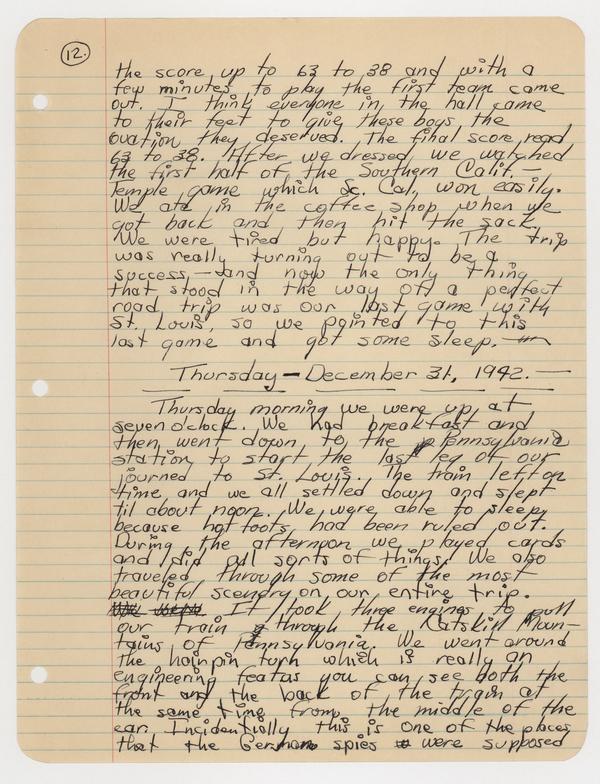 12.
the score up to 63 to 38 and with a
few minutes to play the first team came
out. I think everyone in the hall came
to their feet to give these boys the
ovation they deserved. The final score read
63 to 38. After we dressed we watched
the first half of the Southern Calif. —
Temple game which So. Cal. won easily.
We ate in the coffee shop when we
got back and then hit the sack.
We were tired but happy. The trip
was really turning out to be a
success, — and now the only thing
that stood in the way of a perfect
road trip was our last game with
St. Louis, so we pointed to this
last game and got some sleep. —
Thursday — December 31, 1942. —
Thursday morning we were up at
seven o'clock. We had breakfast and
then went down to the Pennsylvania
station to start the last leg of our
journed to St. Louis. The train left on
time, and we all settled down and slept
til about noon. We were able to sleep
because hot foots had been ruled out.
During the afternoon we played cards
and did all sorts of things. We also
traveled through some of the most
beautiful scenery on our entire trip.
We were It took three engines to pull
our train through the Catskill Moun-
tains of Pennsylvania. We went around
the hairpin turn which is really an
engineering feat as you can see both the
front and the back of the train at
the same time from the middle of the
car. Incidentally this is one of the places
that the German spies were supposed